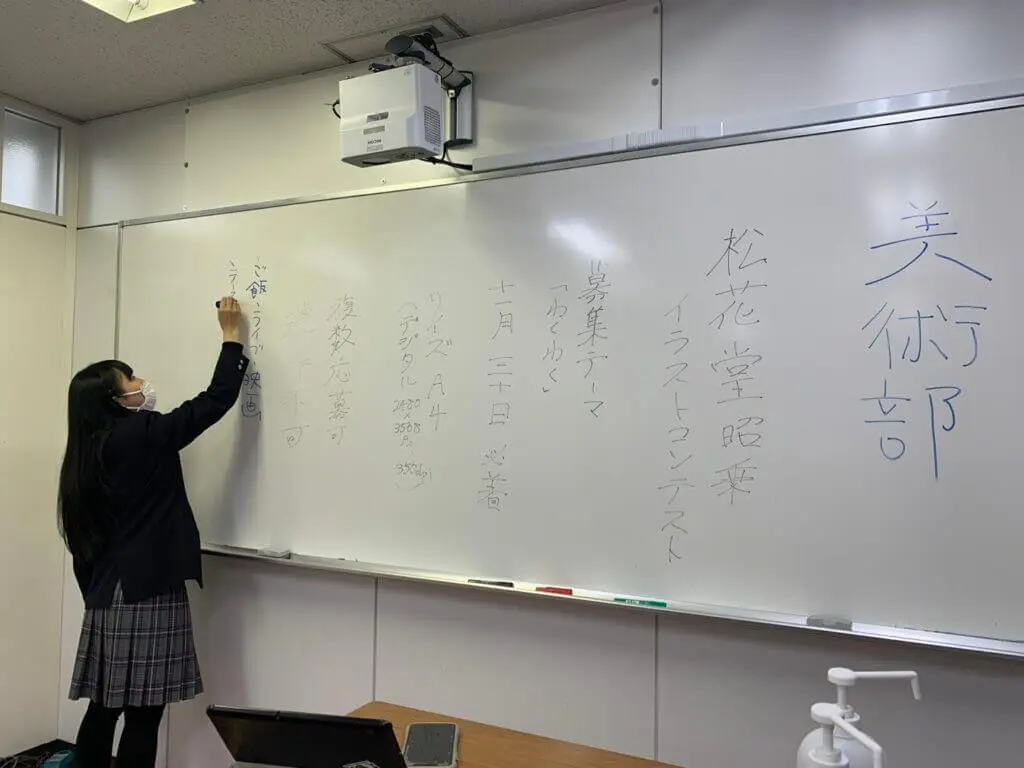 美術部
松花堂昭乗
イラストコンテスト
募集テーマ
「わくわく」
十一月三十日必着
サイズ A4
(デジタル
350dpi)
複数応募可
ご飯、ライブ、映画、
RICOH